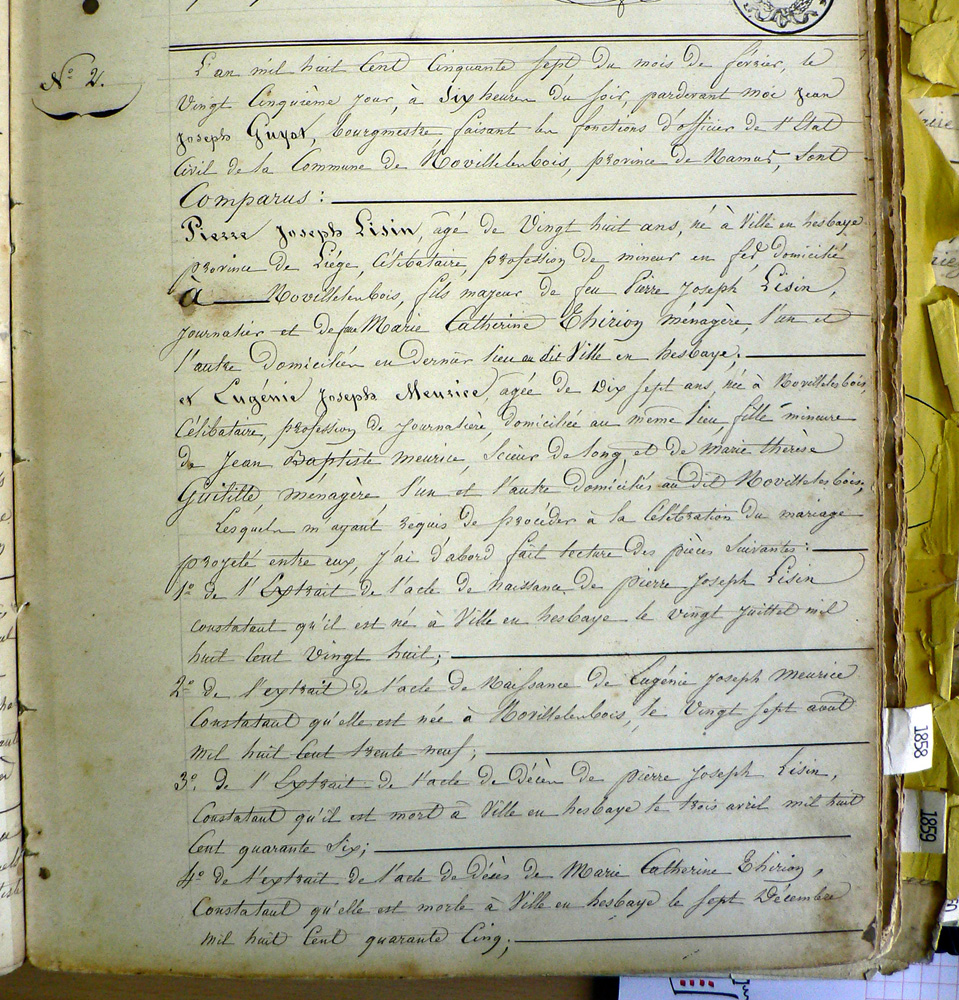 N° 2.
L'an mil huit Cent Cinquante sept du mois de février, le
Vingt Cinquième jour, à Six heures du soir, pardevant moi Jean
Joseph Guyot, bourgmestre faisant les fonctions d'officier de l'Etat
Civil de la Commune de Novillelesbois, province de Namur, Sont
Comparus :
Pierre Joseph Lisin, âgé de Vingt huit ans, né à Ville en hesbaye
province de Liége, Célibataire, profession de mineur en fer domicilié
à Novillelesbois, fils majeur de feu Pierre Joseph Lisin,
Journalier et de feue Marie Catherine Thirion menagère, l'un et
l'autre domiciliés en dernier lieu au dit Ville en hesbaye;
et Eugénie Joseph Meurice, agée de Dix sept ans, née à Novillelesbois,
Célibataire, profession de Journalière, domiciliée au même lieu, fille mineure
de Jean Baptiste Meurice, Scieur de long et de marie thérèse
ménagère l'un et l'autre domiciliés au dit Novillelesbois,
Lesquels m'ayant requis de procéder à la Célébration du mariage
projeté entre eux, j'ai d'abord fait lecture des pièces Suivantes :
1° de l'Extrait de l'acte de naissance de pierre Joseph Lisin
constatant qu'il est né à Ville en hesbaye le vingt Juillet mil
huit Cent Vingt huit;
2° de l'extrait de l'acte de Naissance de Eugénie Joseph Meurice
Constatant qu'elle est née à Novillelesbois, le Vingt sept aout
mil huit Cent trente neuf;
3°. de l'Extrait de l'acte de Décès de pierre Joseph Lisin,
Constatant qu'il est mort à Ville en hesbaye le trois avril mil huit
Cent quarante Six;
4° de l'extrait de l'acte de décès de Marie Catherine Thirion,
Constatant qu'elle est morte à Ville en hesbaye le sept Décembre
mil huit Cent quarante Cinq;
1858
1859